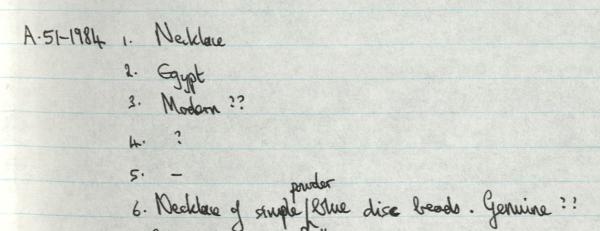 A.51-1984 1. Necklace
2. Egypt
3. Modern ??
4. ?
5. –
powder
6. Necklace of simple / blue disc beads. Genuine ??